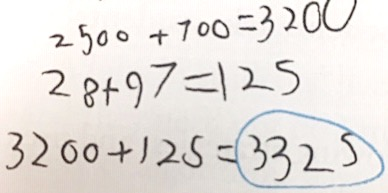 2500 + 700 = 3200
28 + 97 = 125
3200 + 125 = 3325